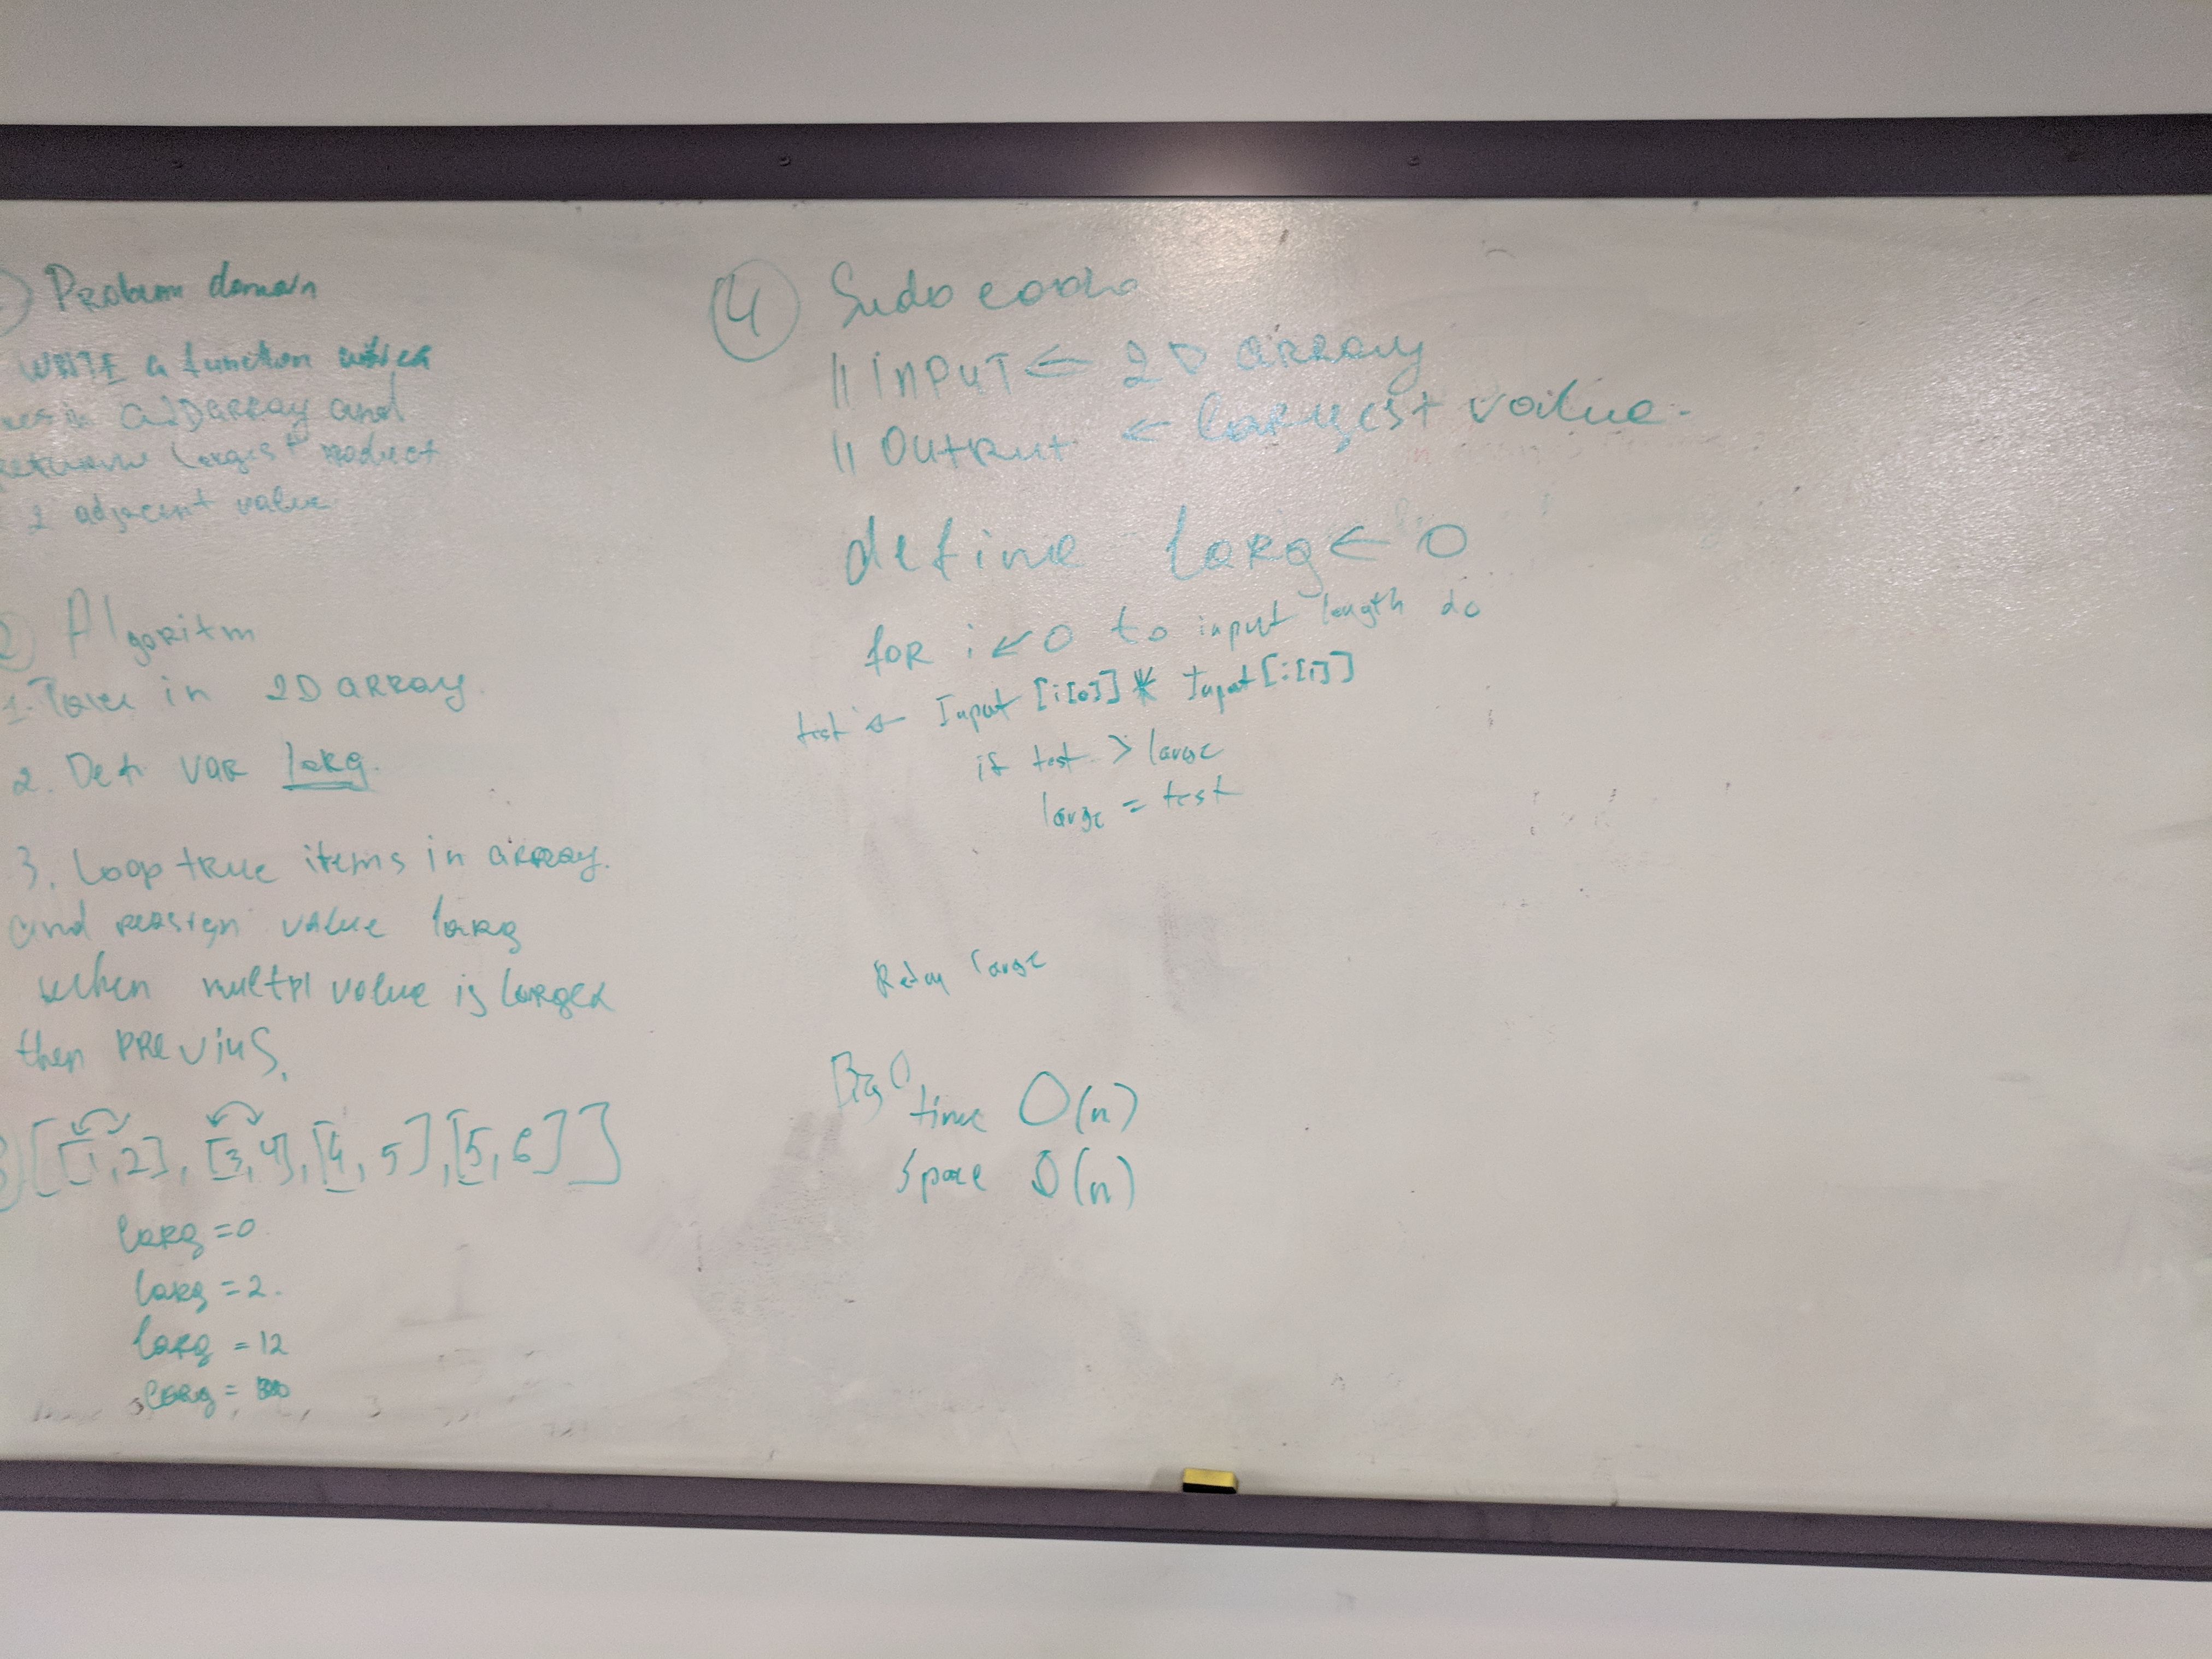 Problem domain
WRITE a function which
in a 2D array and
returns largest product
2 adjacent value
2 Algoritm
1. Take in 2D array.
2. Def var larg.
3. Loop true items in array.
and reasign value larg
when multpl value is larger
then PREVIUS.
[[1,2], [3,4], [4,5], [5,6]]
larg = 0
larg = 2.
larg = 12
larg =
4 Sudo code
// INPUT ← 2D array
// Output ← largest value.
define larg ← 0
for i ← 0 to input length do
test ← Input [i[0]] * Input [i[i]]
if test > large
large = test
large
Big O
time O(n)
Space O(n)